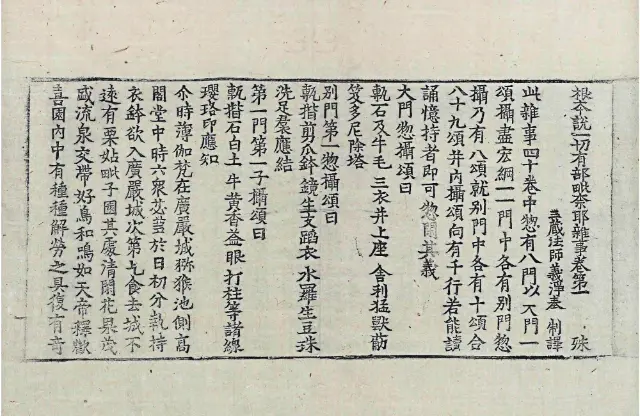 根本說一切有部毗奈耶雜事卷第一 殊
三藏法師義淨奉 制譯
此雜事四十卷中惣有八門以大門一
頌攝盡宏綱一一門中各有別門惣
攝乃有八頌就別門中各有十頌合
八十九頌并內攝頌向有千行若能讀
誦憶持者即可惣閑其義
大門惣攝頌曰
甎石及牛毛 三衣并上座 舍利猛獸筋
笈多尼除塔
別門第一惣攝頌曰
甎揩剪爪鉢 鏡生支蹈衣 水羅生豆珠
洗足裙應結
第一門第一子攝頌曰
甎揩石白土 牛黃香益眼 打柱等諸線
瓔珞印應知
尒時薄伽梵在廣嚴城獼猴池側高
閣堂中時六衆苾芻於日初分執持
衣鉢欲入廣嚴城次第乞食去城不
遠有栗姑毗子園其處清閑花果茂
盛流泉交帶好鳥和鳴如天帝釋歡
喜園內中有種種解勞之具復有奇